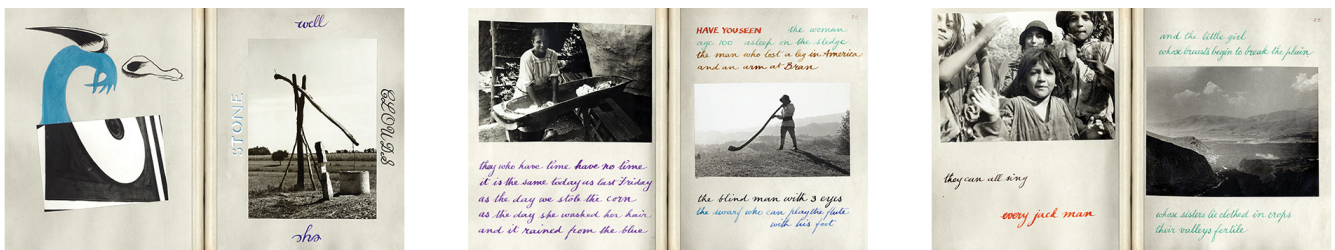 well
STONE
CLOUDS
she
they who have time have no time
it is the same today as last Friday
as the day we stole the corn
as the day she washed her hair
and it rained from the blue
HAVE YOU SEEN the woman
age 100 asleep on the sledge
the man who lost a leg in America
and an arm at Bran
the blind man with 3 eyes
the dwarf who can play the flute
with his foot
they can all sing
every jack man
and the little girl
whose breasts begin to break the plain
whose sisters lie clothed in crops
their valleys fertile